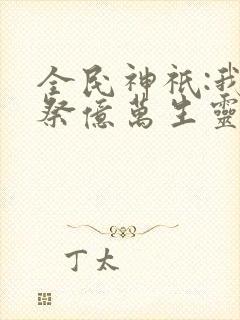 全民神祇:我
祭億萬生靈
丁太